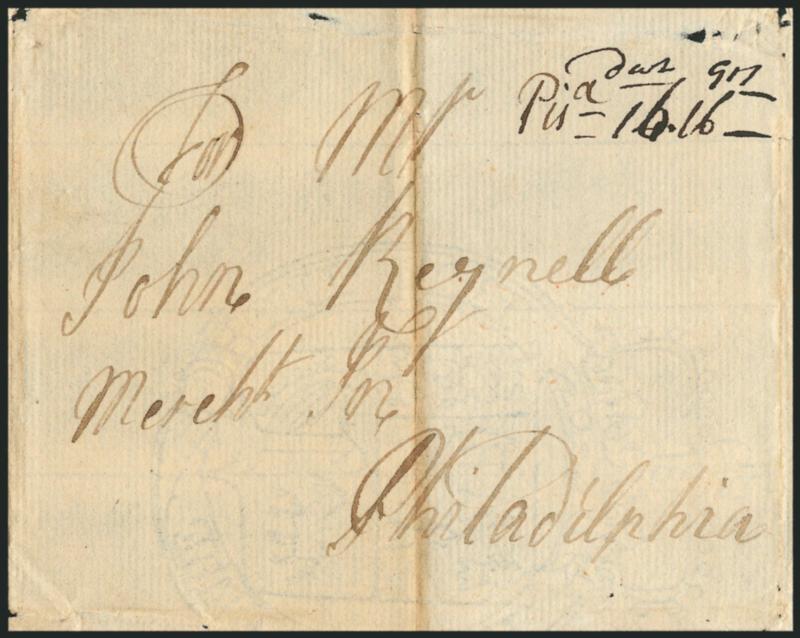 dwt grs
Pd 16.16
For Mr
John Reynell
Mercht In
Philadelphia